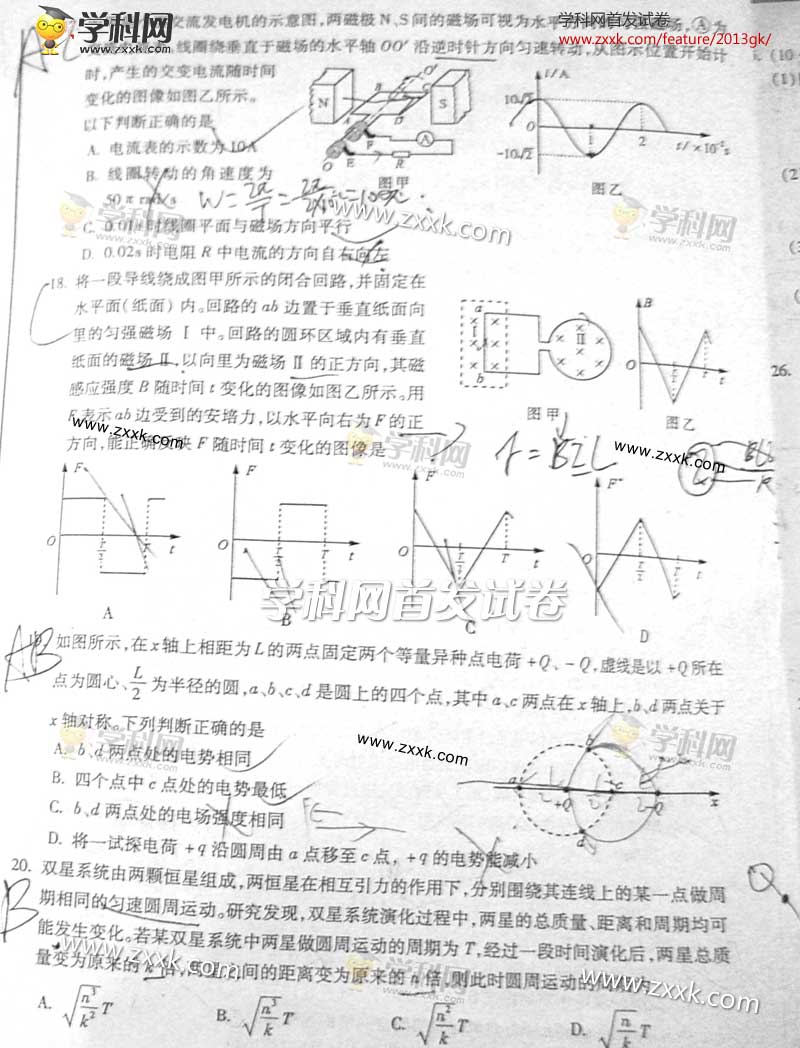 学科网
www.zxxk.com
学科网首发试卷
www.zxxk.com/feature/2013gk/
交流发电机的示意图,两磁极N、S间的磁场可视为水平
线圈绕垂直于磁场的水平轴OO′沿逆时针方向匀速转动,从图示位置开始计
时,产生的交变电流随时间
变化的图像如图乙所示。
以下判断正确的是
A. 电流表的示数为10A
B. 线圈转动的角速度为
50π rad/s
C. 0.01s时线圈平面与磁场方向平行
D. 0.02s时电阻R中电流的方向自右向左
图甲
图乙
18. 将一段导线绕成图甲所示的闭合回路,并固定在
水平面(纸面)内。回路的ab边置于垂直纸面向
里的匀强磁场Ⅰ中。回路的圆环区域内有垂直
纸面的磁场Ⅱ,以向里为磁场Ⅱ的正方向,其磁
感应强度B随时间t变化的图像如图乙所示。用
F表示ab边受到的安培力,以水平向右为F的正
方向,能正确反映F随时间t变化的图像是
图甲
图乙
F=BIL
A
B
C
D
AB
如图所示,在x轴上相距为L的两点固定两个等量异种点电荷+Q、-Q,虚线是以+Q所在
点为圆心、L/2为半径的圆,a、b、c、d是圆上的四个点,其中a、c两点在x轴上,b、d两点关于
x轴对称。下列判断正确的是
A. b、d两点处的电势相同
B. 四个点中c点处的电势最低
C. b、d两点处的电场强度相同
D. 将一试探电荷+q沿圆周由a点移至c点,+q的电势能减小
B
20. 双星系统由两颗恒星组成,两恒星在相互引力的作用下,分别围绕其连线上的某一点做周
期相同的匀速圆周运动。研究发现,双星系统演化过程中,两星的总质量、距离和周期均可
能发生变化。若某双星系统中两星做圆周运动的周期为T,经过一段时间演化后,两星总质
量变为原来的k倍,两星之间的距离变为原来的n倍,则此时圆周运动的周期为
A. √(n³/k²) T
B. √(n³/k) T
C. √(n²/k) T
D. √(n/k) T
26.